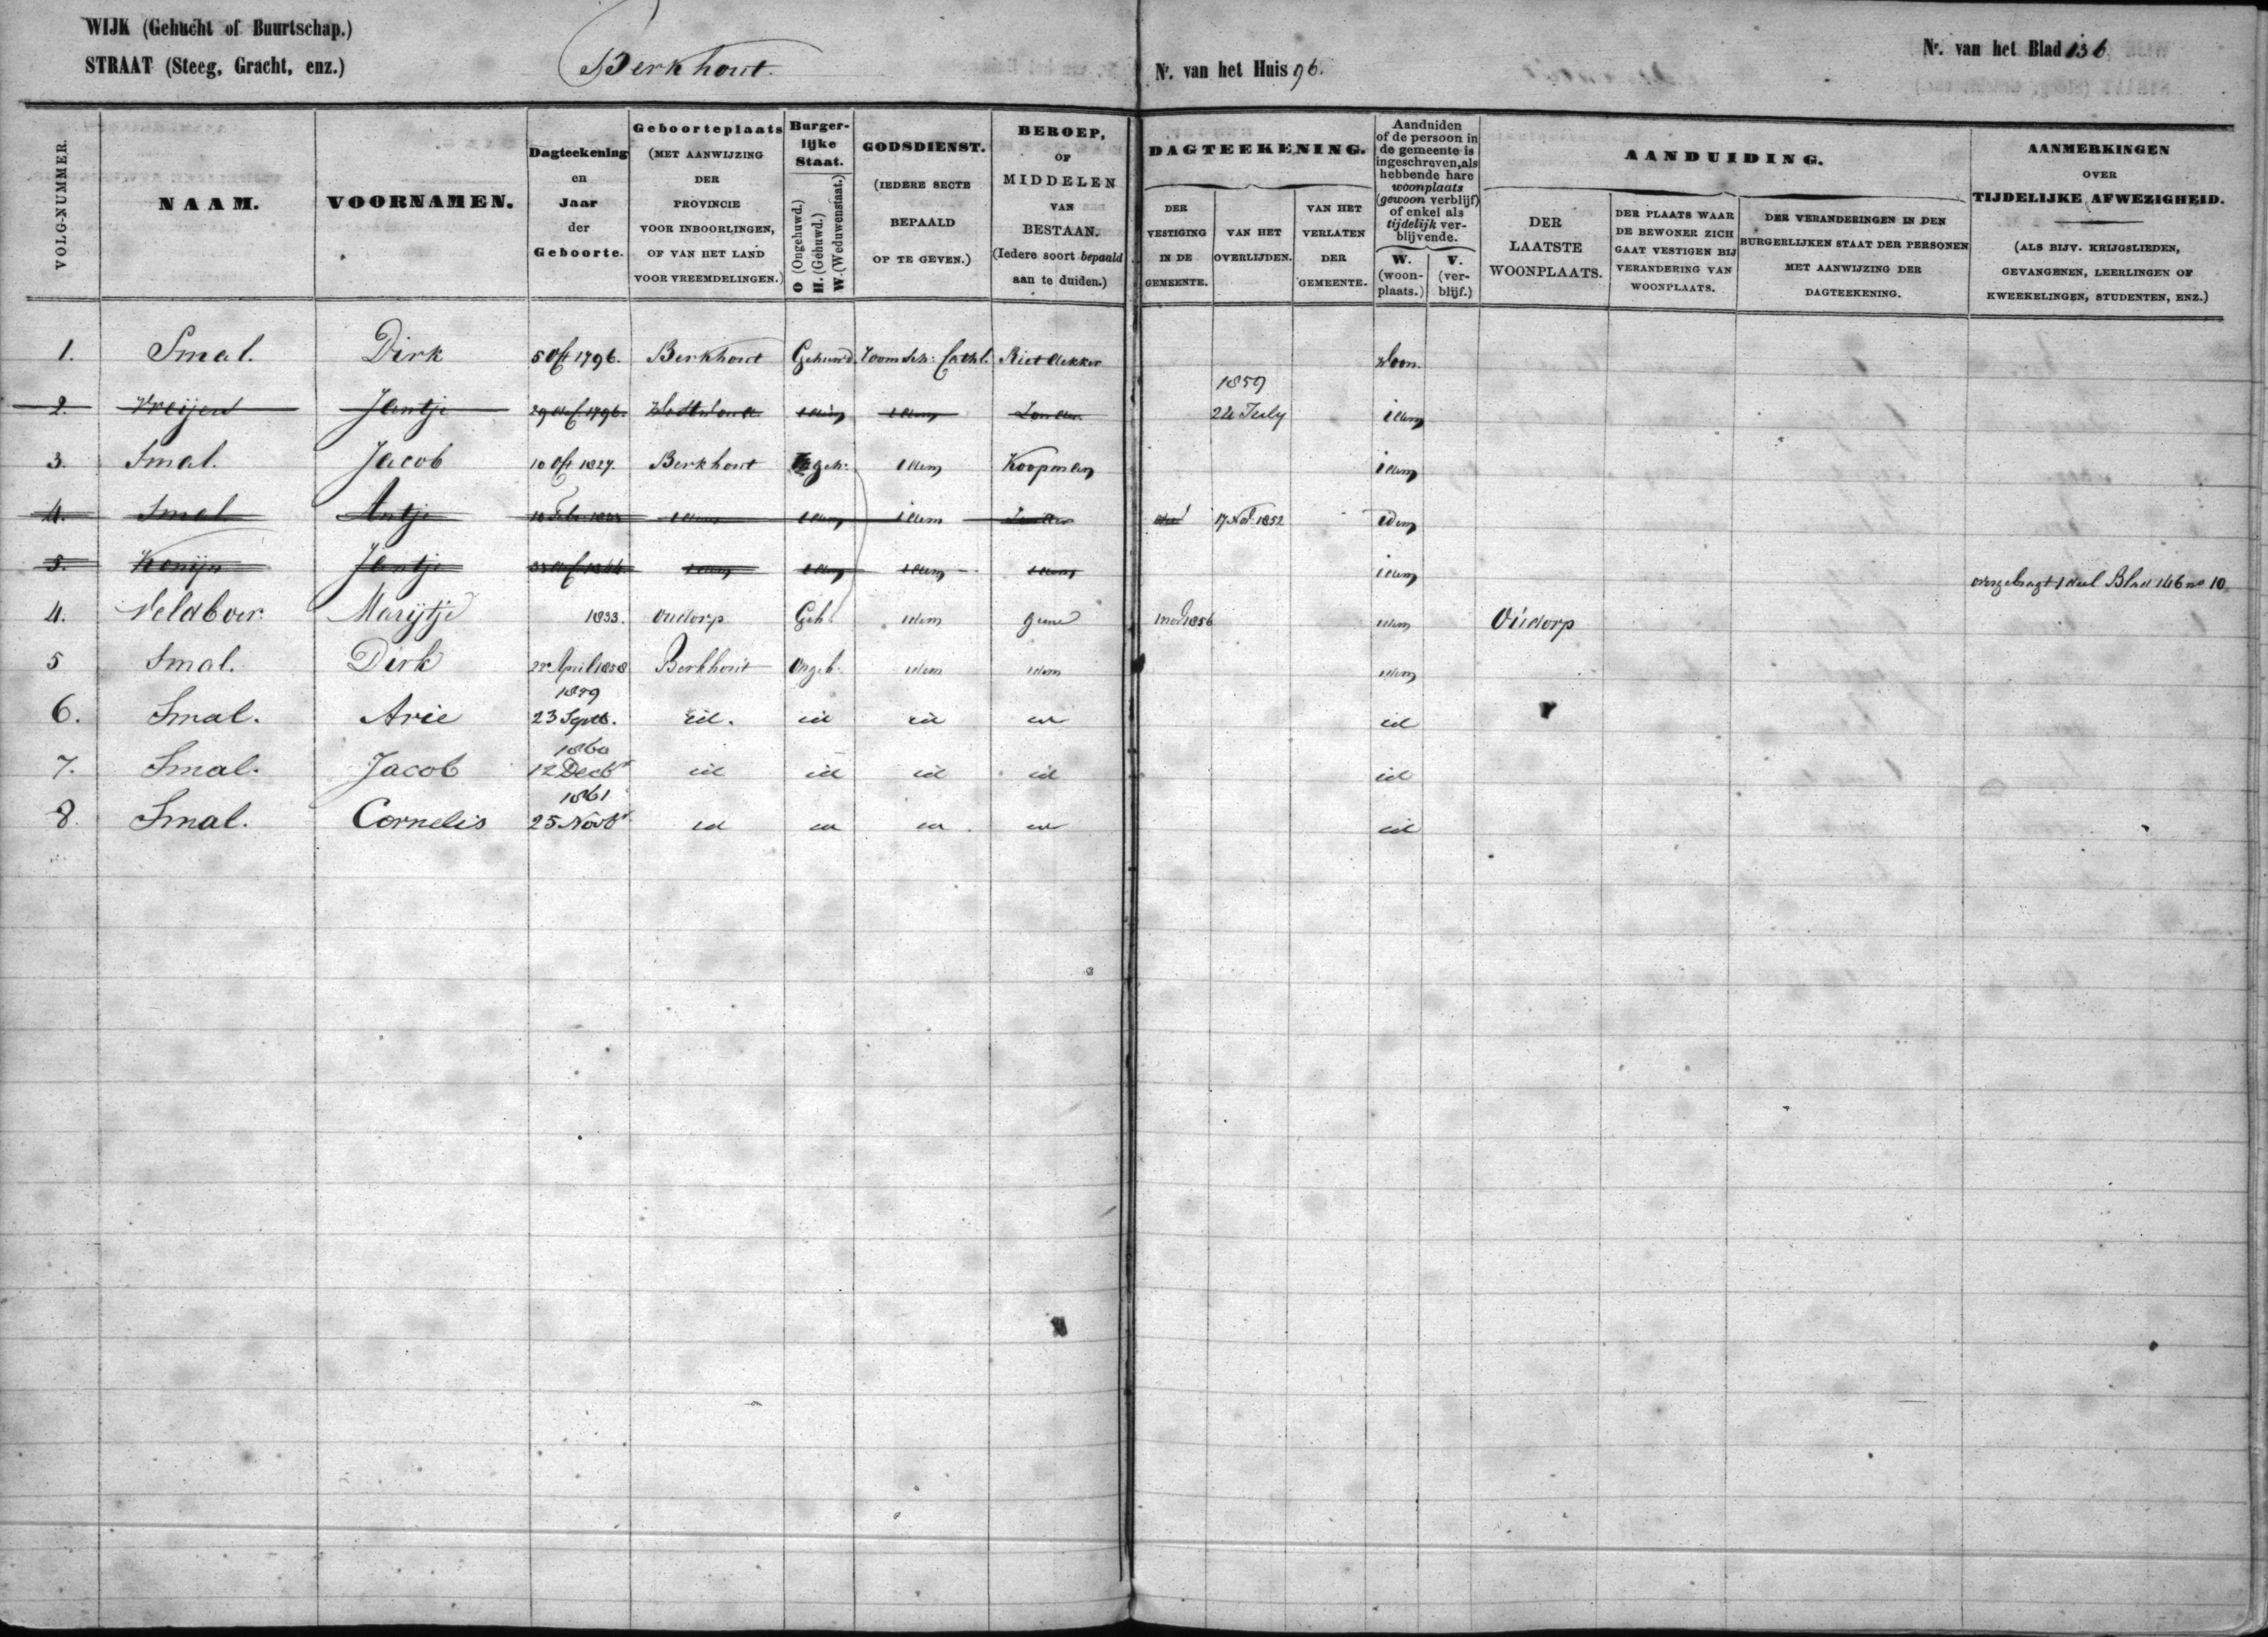 WIJK (Gehucht of Buurtschap.)
STRAAT (Steeg, Gracht, enz.)
Berkhout.
Nr. van het Huis 96.
Nr. van het Blad 136
VOLG-NUMMER.
NAAM.
VOORNAMEN.
Dagteekening
en
Jaar
der
Geboorte.
Geboorteplaats
(MET AANWIJZING
DER
PROVINCIE
VOOR INBOORLINGEN,
OF VAN HET LAND
VOOR VREEMDELINGEN.)
Burger-
lijke
Staat.
O (Ongehuwd.)
H. (Gehuwd.)
W. (Weduwenstaat.)
GODSDIENST.
(IEDERE SECTE
BEPAALD
OP TE GEVEN.)
BEROEP,
OF
MIDDELEN
VAN
BESTAAN.
(Iedere soort bepaald
aan te duiden.)
DAGTEEKENING.
DER
VESTIGING
IN DE
GEMEENTE.
VAN HET
OVERLIJDEN.
VAN HET
VERLATEN
DER
GEMEENTE.
Aanduiden
of de persoon in
de gemeente is
ingeschreven, als
hebbende hare
woonplaats
(gewoon verblijf)
of enkel als
tijdelijk ver-
blijvende.
W.
(woon-
plaats.)
V.
(ver-
blijf.)
AANDUIDING.
DER
LAATSTE
WOONPLAATS.
DER PLAATS WAAR
DE BEWONER ZICH
GAAT VESTIGEN BIJ
VERANDERING VAN
WOONPLAATS.
DER VERANDERINGEN IN DEN
BURGERLIJKEN STAAT DER PERSONEN
MET AANWIJZING DER
DAGTEEKENING.
AANMERKINGEN
OVER
TIJDELIJKE AFWEZIGHEID.
(ALS BIJV. KRIJGSLIEDEN,
GEVANGENEN, LEERLINGEN OF
KWEEKELINGEN, STUDENTEN, ENZ.)
1. Smal. Dirk 5 Oct 1796. Berkhout Gehuwd. Roomsch: Cathl. Rietdekker Woon.
2. Vreijer Jantje 1796. idem idem Zonder 1859 24 July idem
3. Smal. Jacob 10 Oct 1827. Berkhout Ongeh: idem Koopman idem
4. Smal Antje idem idem idem Zonder 17 Nov 1852 idem
5. Konijn Jantje 1844 idem idem idem idem idem overgebragt 1 deel Blad 146 no 10
4. Veldboer Marijtje 1833. Oudorp Geh. idem geene 1 nov 1856 idem Oudorp
5 Smal. Dirk 22 April 1858 Berkhout Ongeh. idem idem idem
6. Smal. Arie 1859 23 Septb. id. id id id id
7. Smal. Jacob 1860 12 Decbr id id id id id
8. Smal. Cornelis 1861 25 Novbr id id id id id